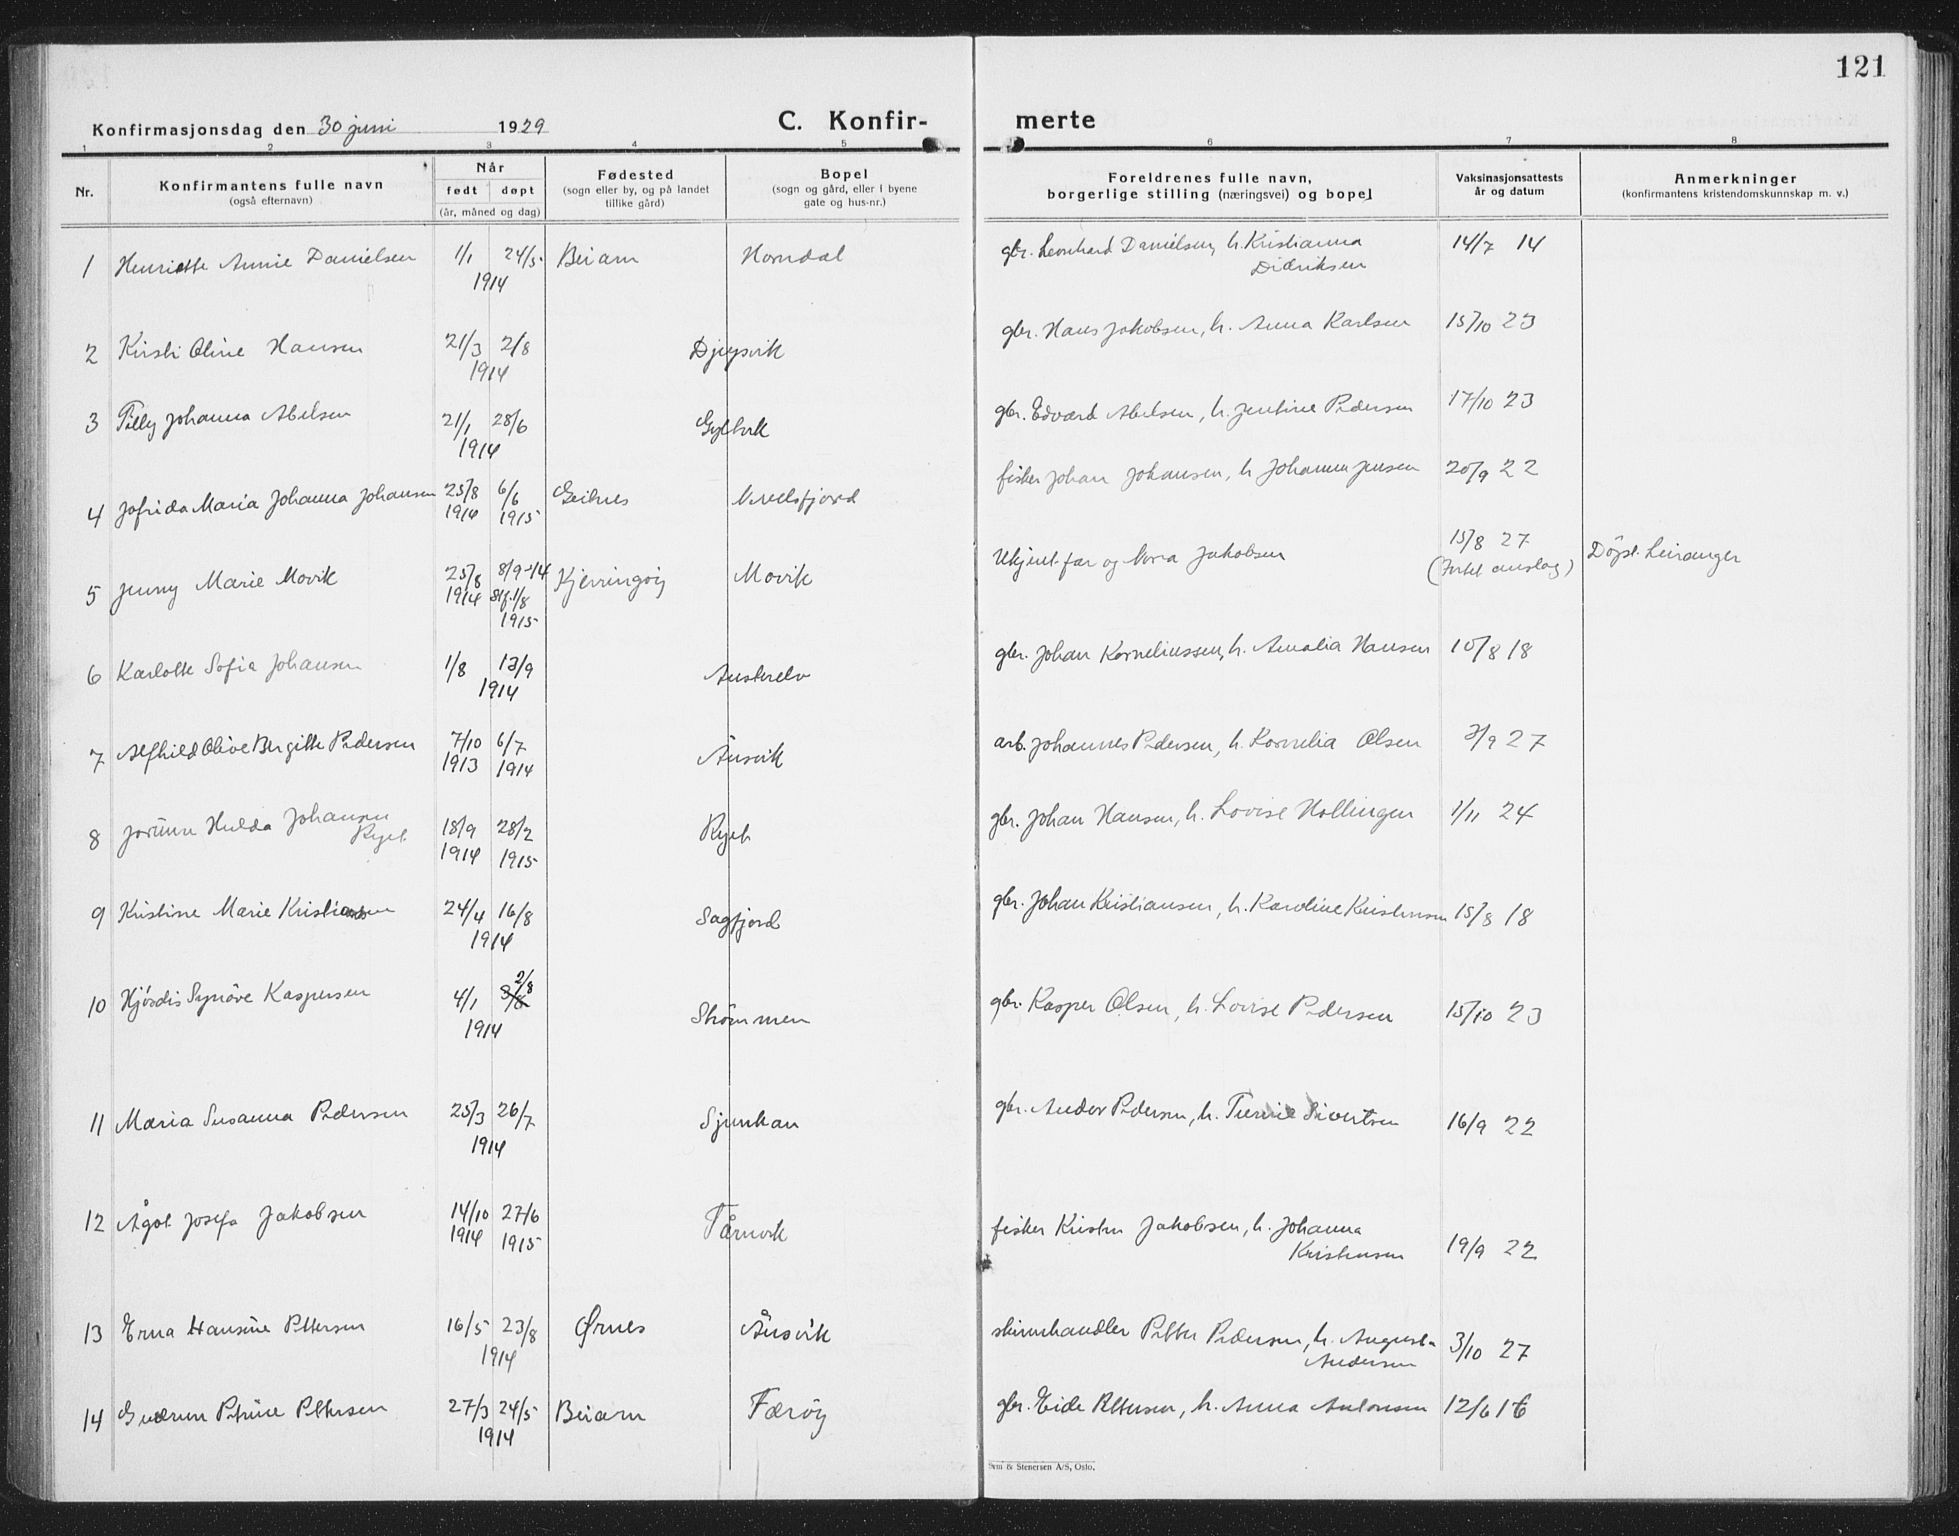 121
Konfirmasjonsdag den 30 juni 1929 C. Konfir- merte
1 2 3 4 5 6 7 8
Nr. Konfirmantens fulle navn (også efternavn)
Når født døpt (år, måned og dag)
Fødested (sogn eller by, og på landet tillike gård)
Bopel (sogn og gård, eller i byene gate og hus-nr.)
Foreldrenes fulle navn, borgerlige stilling (næringsvei) og bopel
Vaksinasjonsattests år og datum
Anmerkninger (konfirmantens kristendomskunnskap m. v.)
1 Henriette Annie Danielsen 1/1 24/5 1914 Beiarn Horndal gbr. Leonhard Danielsen, h. Kristianna Didriksen 14/7 14
2 Kirsti Oline Hansen 21/3 2/8 1914 Djupvik gbr. Hans Jakobsen, h. Anna Karlsen 15/10 23
3 Tilly Johanna Abelsen 21/1 28/6 1914 Gyltvik gbr. Edvard Abelsen, h. Jentine Pedersen 17/10 23
4 Jofrida Maria Johanna Johansen 25/8 1914 6/6 1915 Geitnes Nevelsfjord fisker Johan Johansen, h. Johanna Jensen 20/9 22
5 Jenny Marie Movik 25/8 1914 8/9-14 Stf. 1/8 1915 Kjerringøy Movik Ukjent far og Nora Jakobsen 15/8 27 Døpt Leiranger
6 Karlotte Sofia Johansen 1/8 13/9 1914 Austerelv gbr. Johan Korneliussen, h. Amalia Hansen 10/8 18
7 Alfhild Olive Bergitte Pedersen 7/10 1913 6/7 1914 Åusvik arb. Johannes Pedersen, h. Kornelia Olsen 3/9 27
8 Jorunn Hulda Johansen Ryet 18/9 1914 28/2 1915 Ryet gbr. Johan Hansen, h. Lovise Hollingen 1/11 24
9 Kristine Marie Kristiansen 24/4 16/8 1914 Sagfjord gbr. Johan Kristiansen, h. Karoline Kristensen 15/8 18
10 Hjørdis Synøve Kaspersen 4/1 3/8 2/8 1914 Strømmen gbr. Kasper Olsen, h. Lovise Pedersen 15/10 23
11 Maria Susanna Pedersen 25/3 26/7 1914 Sjunkan gbr. Andor Pedersen, h. Sivertsen 16/9 22
12 Ågot Josefa Jakobsen 14/10 1914 27/6 1915 Tårnvik fisker Kristen Jakobsen, h. Johanna Kristensen 19/9 22
13 Erna Hansine Pettersen 16/5 23/8 1914 Ørnes Åusvik skinnhandler Petter Pedersen, h. Augusta Andersen 3/10 27
14 Gudrun Petrine Pettersen 27/3 24/5 1914 Beiarn Færøy gbr. Eide Pettersen, h. Anna Antonsen 12/6 16
Sem & Stenersen A/S, Oslo.